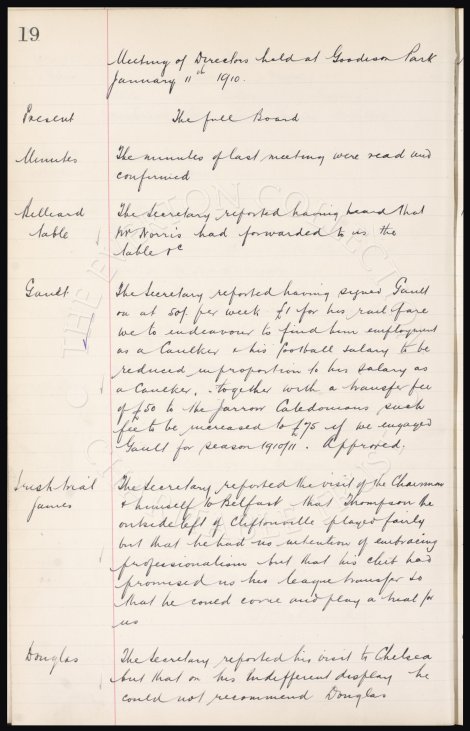 19
Meeting of Directors held at Goodison Park
January 11th 1910.
Present The full Board
Minutes The minutes of last meeting were read and
confirmed
Billiard The Secretary reported having heard that
table Mr Norris had forwarded to us the
table &c
Gault The Secretary reported having signed Gault
on at 50/- per week £1 for his rail fare
we to endeavour to find him employment
as a Caulker & his football salary to be
reduced in proportion to his salary as
a Caulker. together with a transfer fee
of £50 to the Jarrow Caledonians, such
fee to be increased to £75 if we engaged
Gault for season 1910/11. Approved.
Irish trial The Secretary reported the visit of the Chairman
games & himself to Belfast that Thompson the
outside left of Cliftonville played fairly
but that he had no intention of embracing
professionalism but that his club had
promised us his league transfer so
that he could come and play a trial for
us
Douglas The Secretary reported his visit to Chelsea
but that on his indifferent display he
could not recommend Douglas
THE EVERTON COLLECTION